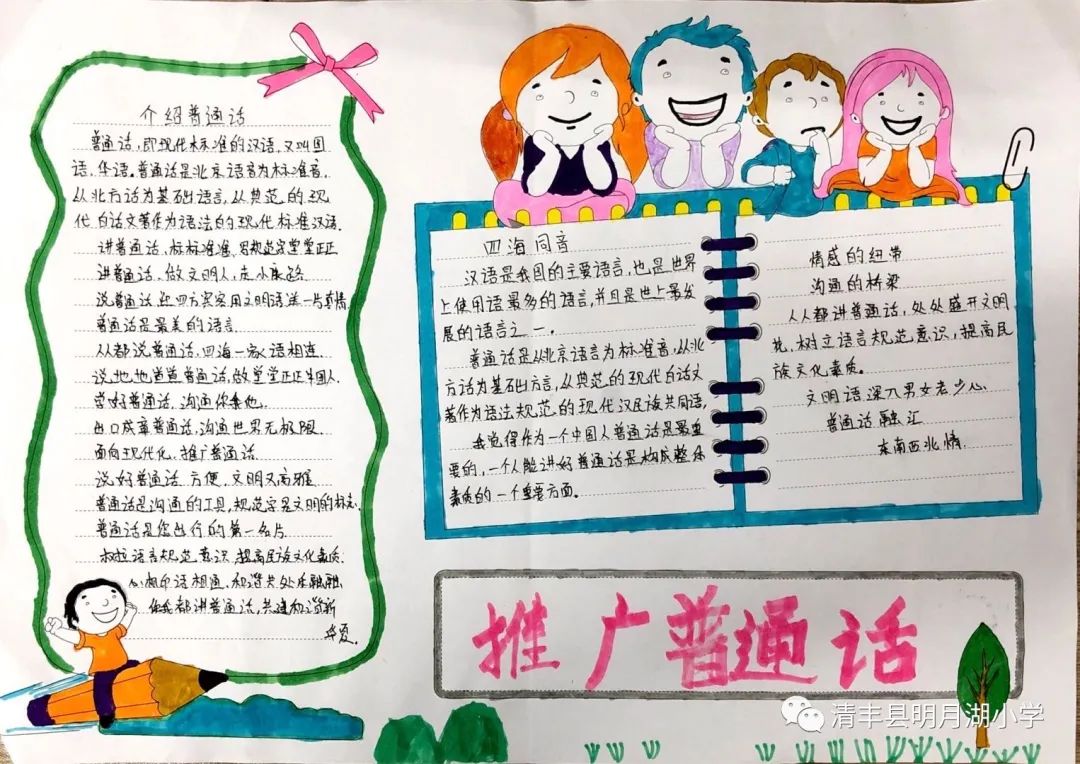 介绍普通话
普通话,即现代标准的汉语,又叫国
语、华语。普通话是北京语音为标准音,
从北方话为基础语言,从典范的现
代白话文著作为语法的现代标准汉语.
讲普通话,标标准准,写规范字堂堂正正
讲普通话,做文明人,走小康路
说普通话 迎四方宾客用文明语送一片真情
普通话是最美的语言
人人都说普通话,四海一家心语相连
说地地道道普通话,做堂堂正正中国人.
学好普通话,沟通你我他.
出口成章普通话,沟通世界无极限
面向现代化,推广普通话
说好普通话 方便,文明又高雅
普通话是沟通的工具,规范字是文明的标志.
普通话是您出行的第一名片
树立语言规范意识,提高民族文化素质.
心相印语相通,和谐共处乐融融.
你我都讲普通话,共建和谐新
华夏。
四海同音
汉语是我国的主要语言,也是世界
上使用语最多的语言,并且是世上最发
展的语言之一。
普通话是从北京语言为标准音,从北
方话为基础方言,从典范的现代白话文
著作为语法规范的现代汉民族共同语,
我觉得作为一个中国人普通话是最重
要的,一个人能讲好普通话是构成整体
素质的一个重要方面。
情感的纽带
沟通的桥梁
人人都讲普通话,处处盛开文明
花,树立语言规范意识,提高民
族文化素质。
文明语深入男女老少心.
普通话融汇
东南西北情.
推广普通话
清丰县明月湖小学